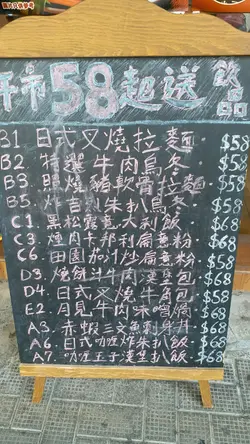 圖片只供參考
午市58起送飲品
B1 日式叉燒拉麵 $58
B2 特選牛肉烏冬 $58
B3 照燒豬軟骨拉麵 $58
B5 炸吉列朱扒烏冬 $58
C1 黑松露意大利飯 $58
C3 煙肉卡邦利扁意粉 $58
C6 田園加汁炒扁意粉 $58
D3 燒餅斗牛肉漢堡包 $58
D4 日式叉燒牛角包 $58
E2 月見牛肉味噌鍋 $68
A3 赤蝦三文魚刺身丼 $68
A6 日式咖喱炸朱扒飯 $68
A7 咖喱玉子漢堡扒飯 $68